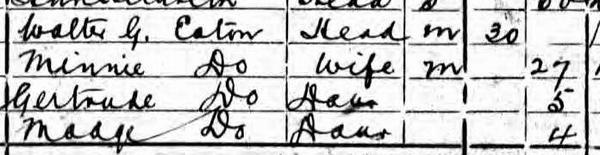 Walter G. Eaton Head m 30
Minnie Do Wife m 27
Gertrude Do Daur 5
Madge Do Daur 4